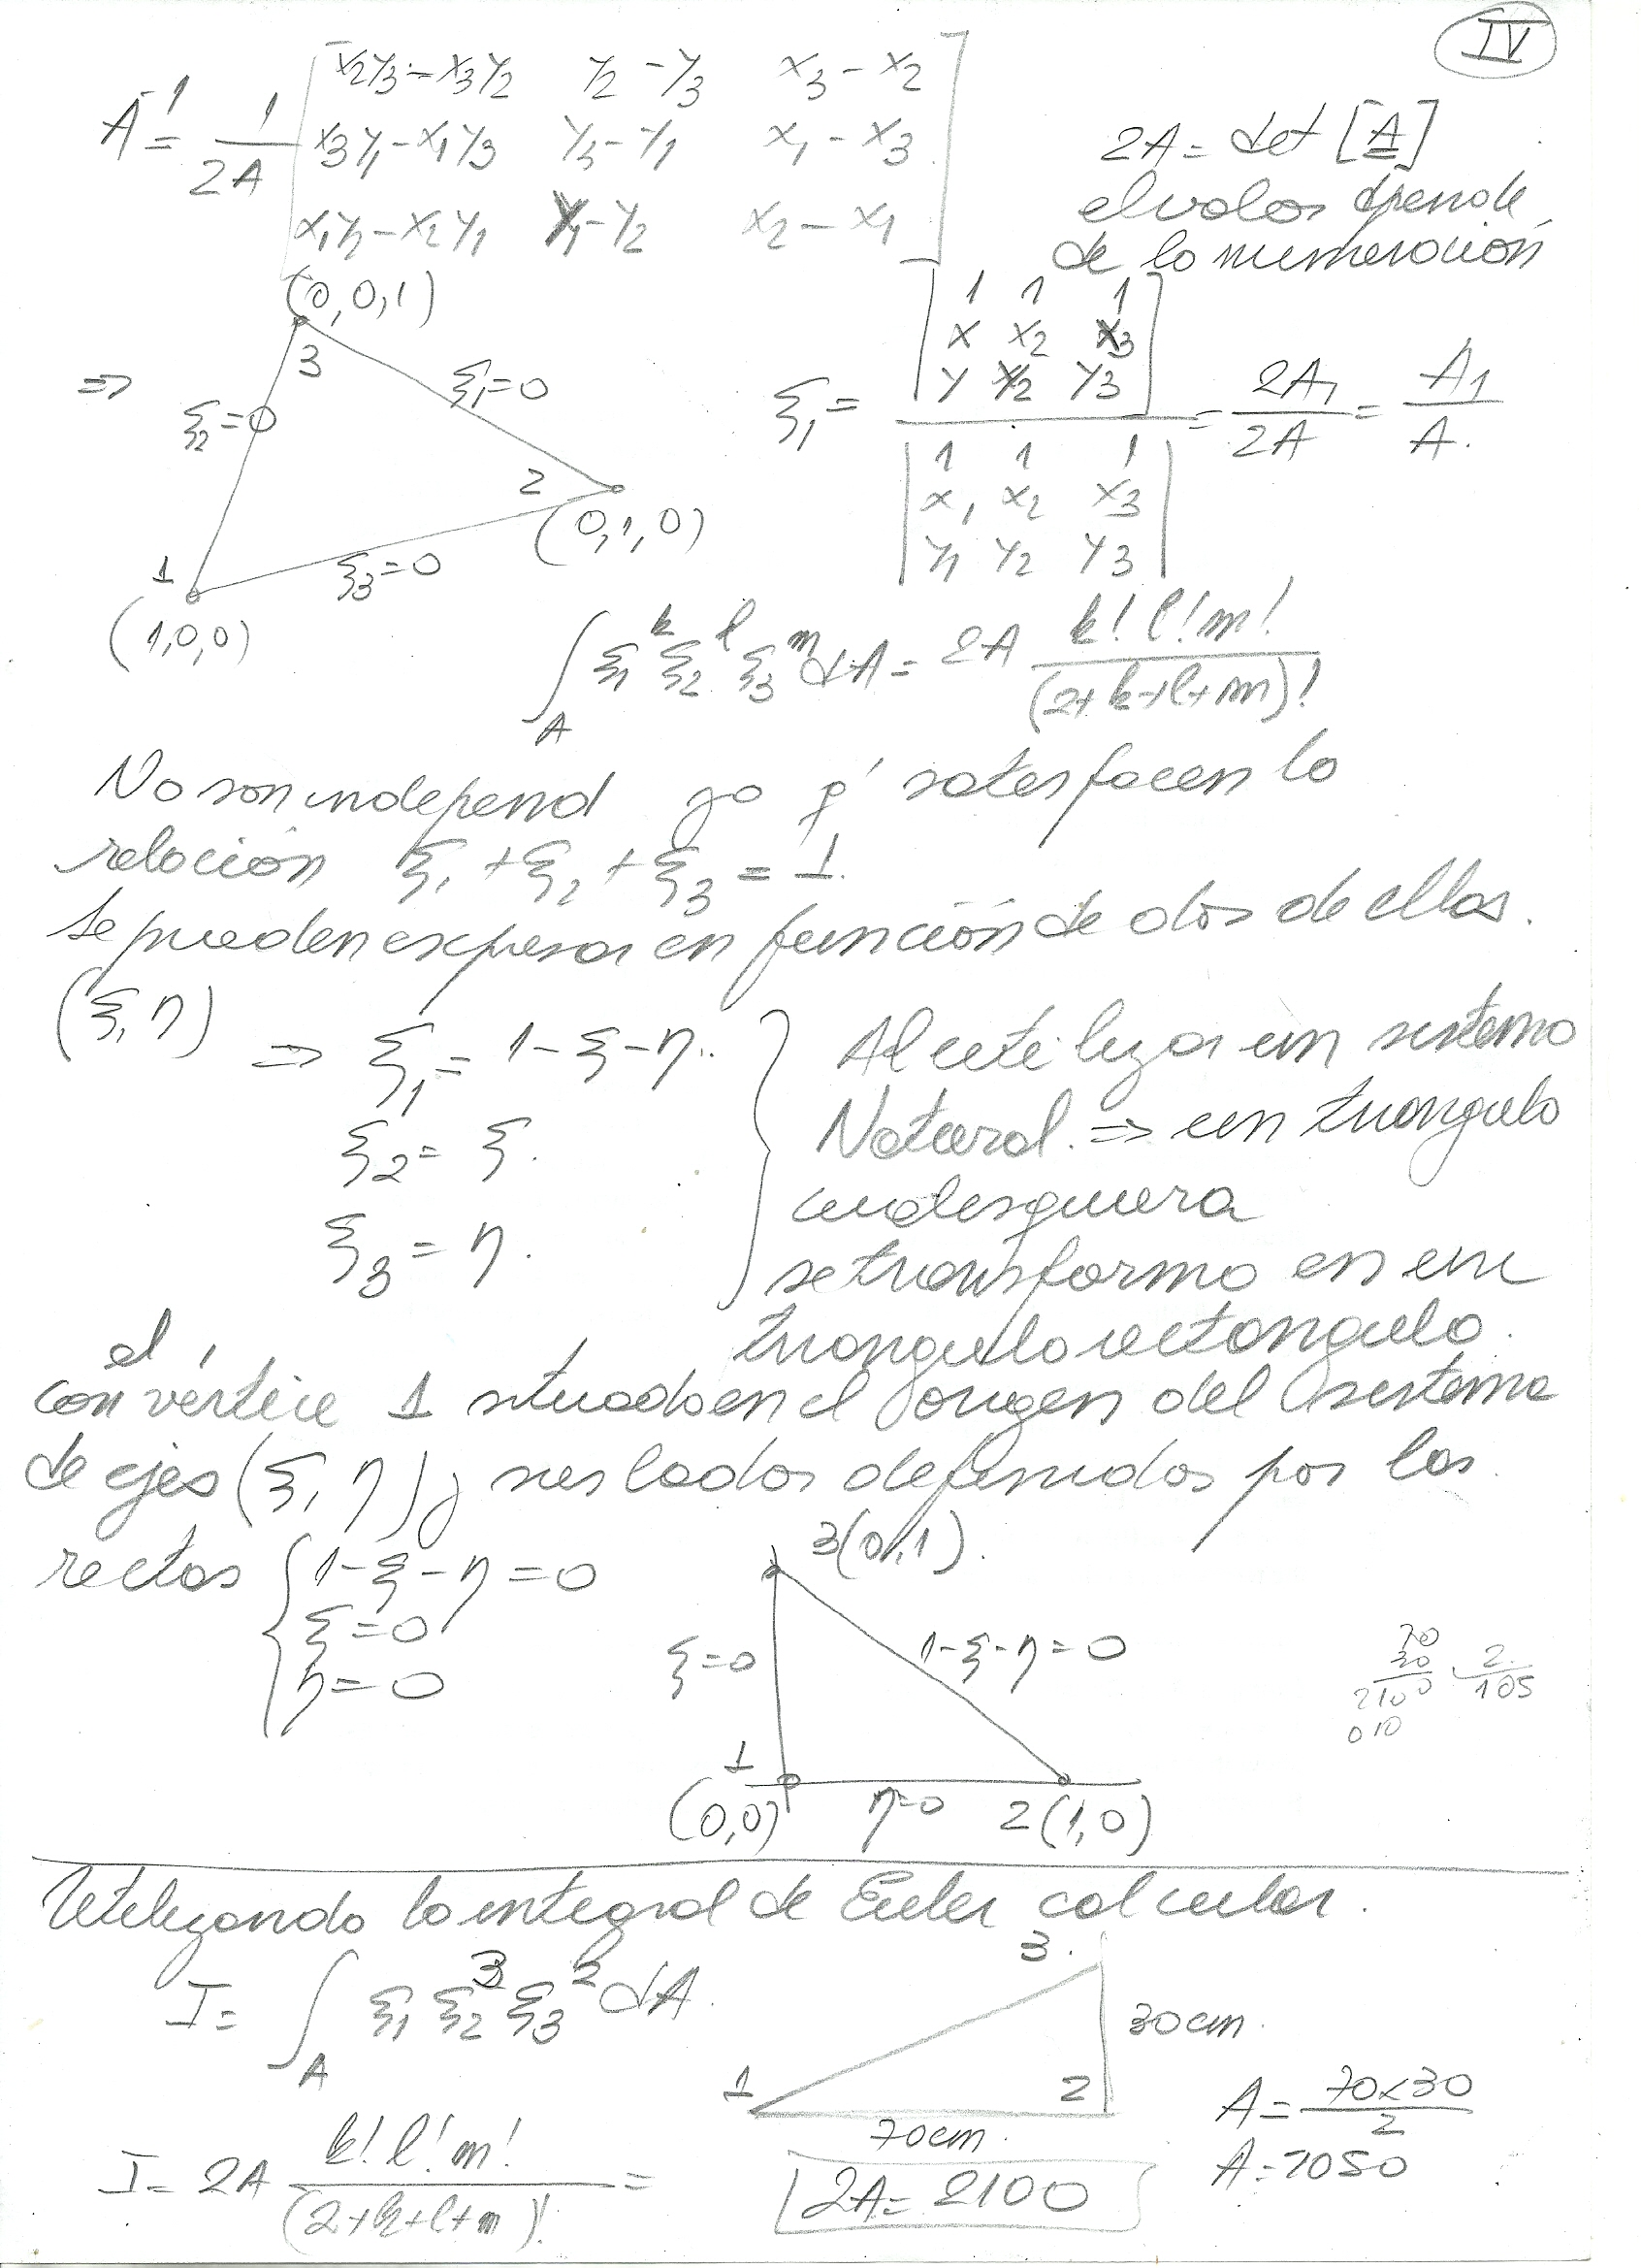 IV
A⁻¹ = 1/2A [x₂y₃-x₃y₂ y₂-y₃ x₃-x₂
x₃y₁-x₁y₃ y₃-y₁ x₁-x₃
x₁y₂-x₂y₁ y₁-y₂ x₂-x₁]
2A = det [A]
el valor depende
de la numeración
(0,0,1)
3
⇒
ξ₂=0
ξ₁=0
2
(0,1,0)
1
ξ₃=0
(1,0,0)
ξ₁ = |1 1 1; x x₂ x₃; y y₂ y₃| / |1 1 1; x₁ x₂ x₃; y₁ y₂ y₃| = 2A₁/2A = A₁/A.
∫_A ξ₁^k ξ₂^l ξ₃^m dA = 2A k! l! m! / (2+k+l+m)!
No son independ ya q' satisfacen la
relación ξ₁ + ξ₂ + ξ₃ = 1.
Se pueden expresar en función de dos de ellas.
(ξ, η) ⇒ ξ₁ = 1-ξ-η.
ξ₂ = ξ.
ξ₃ = η.
Al utilizar un sistema
Natural. ⇒ un triangulo
cualesquiera
se transforma en un
triangulo rectangulo.
con el vértice 1 situado en el origen del sistema
de ejes (ξ, η) y sus lados definidos por las
rectas { 1-ξ-η=0
ξ=0
η=0
3(0,1).
ξ=0
1-ξ-η=0
1
(0,0)
η=0
2(1,0)
70
30
2100 2
010 105
Utilizando la integral de Euler calcular.
I = ∫_A ξ₁ ξ₂³ ξ₃² dA.
3.
30cm.
1
2
70cm.
A = 70x30/2
A = 1050
I = 2A k! l! m! / (2+k+l+m)! =
2A = 2100